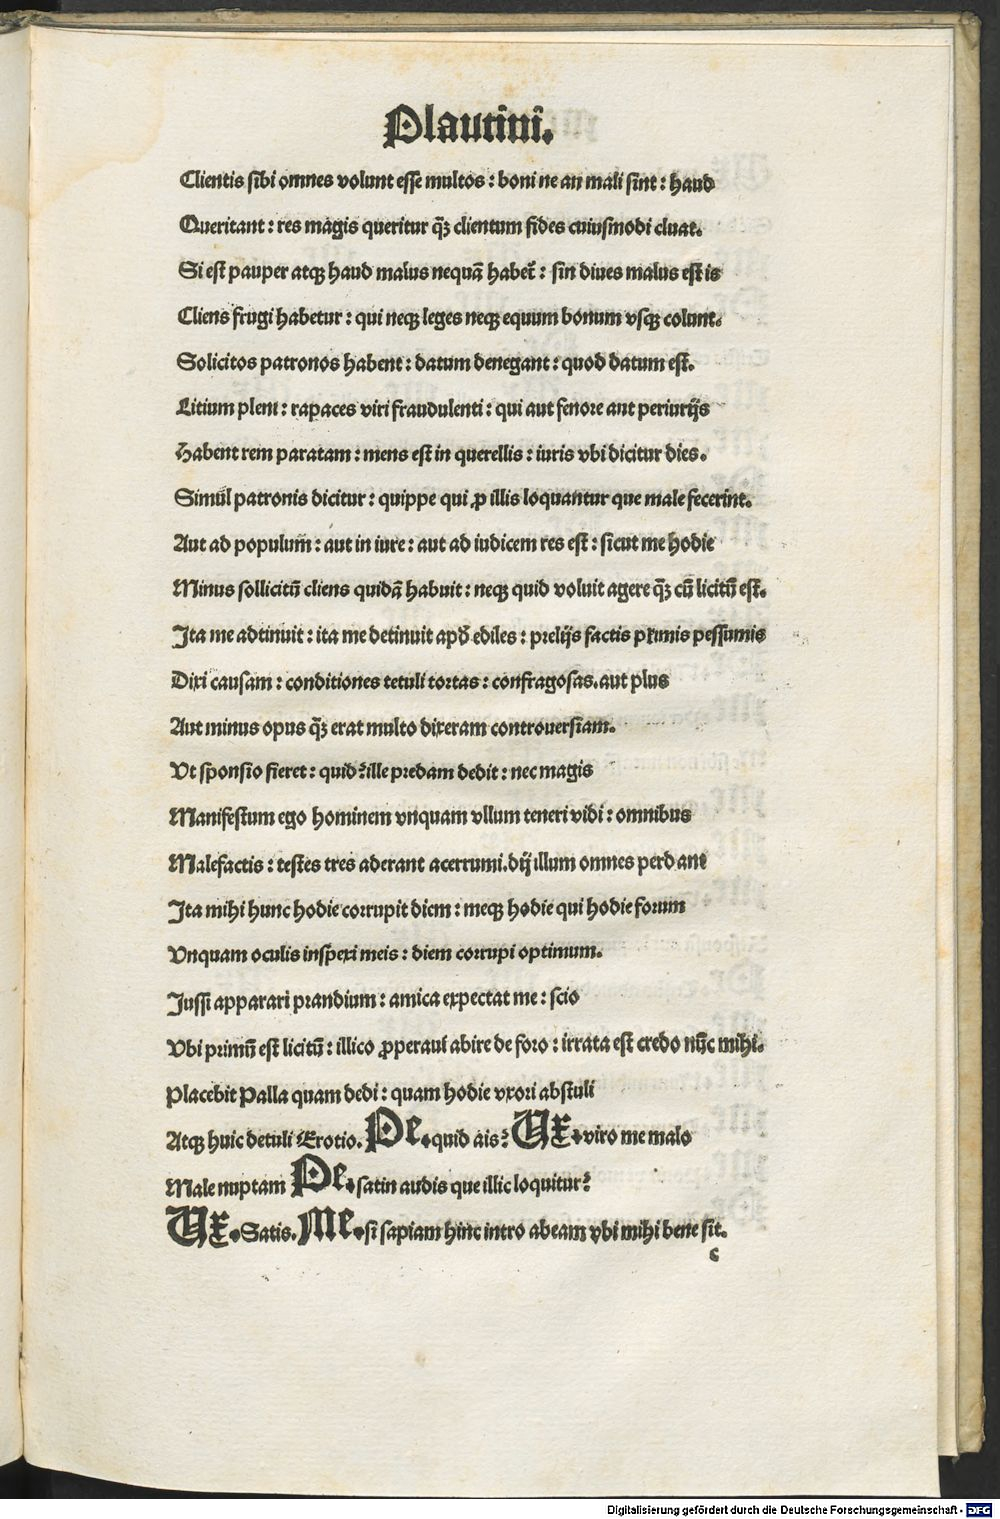 Plautini.
Clientis sibi omnes volunt esse multos : boni ne an mali sint : haud
Queritant : res magis queritur q̃ꝫ clientum fides cuiusmodi cluat.
Si est pauper atqꝫ haud malus nequã habet̃ : sin diues malus est is
Cliens frugi habetur : qui neqꝫ leges neqꝫ equum bonum vsqꝫ colunt.
Solicitos patronos habent : datum denegant : quod datum est.
Litium pleni : rapaces viri fraudulenti : qui aut fenore aut periurijs
Habent rem paratam : mens est in querellis : iuris vbi dicitur dies.
Simul patronis dicitur : quippe qui ꝓ illis loquantur que male fecerint.
Aut ad populum : aut in iure : aut ad iudicem res est : sicut me hodie
Minus sollicitũ cliens quidã habuit : neqꝫ quid voluit agere q̃ꝫ cũ licitũ est.
Ita me adtinuit : ita me detinuit apď ediles : prelijs factis primis pessumis
Dixi causam : conditiones tetuli tortas : confragosas. aut plus
Aut minus opus q̃ꝫ erat multo dixeram controuersiam.
Vt sponsio fieret : quid? ille predam dedit : nec magis
Manifestum ego hominem vnquam vllum teneri vidi : omnibus
Malefactis : testes tres aderant acerrumi. dij illum omnes perdant
Ita mihi hunc hodie corrupit diem : meqꝫ hodie qui hodie forum
Vnquam oculis inspexi meis : diem corrupi optimum.
Jussi apparari prandium : amica expectat me : scio
Vbi primũ est licitũ : illico ꝓperaui abire de foro : irrata est credo nũc mihi.
Placebit Palla quam dedi : quam hodie vxori abstuli
Atqꝫ huic detuli Erotio. Pe. quid ais? Ux. viro me malo
Male nuptam Pe. satin audis que illic loquitur?
Ux. Satis. Me. si sapiam hinc intro abeam vbi mihi bene sit.
c
Digitalisierung gefördert durch die Deutsche Forschungsgemeinschaft - DFG